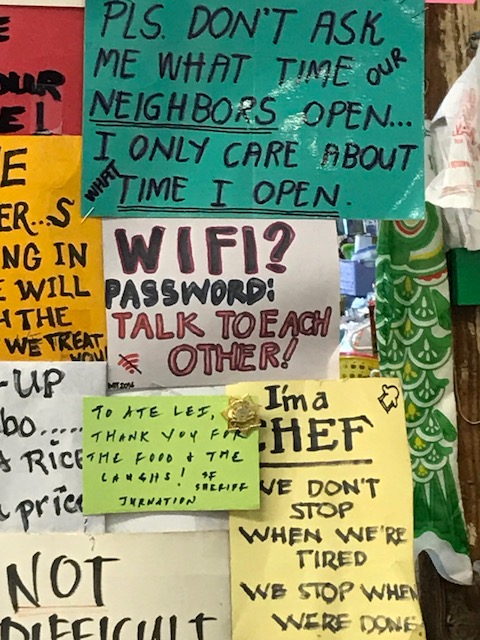 PLS. DON'T ASK
ME WHAT TIME OUR
NEIGHBORS OPEN...
I ONLY CARE ABOUT
WHAT TIME I OPEN.
E
OUR
E!
E
ER..S
NG IN
E WILL
H THE
WE TREAT
YOU
WIFI?
PASSWORD:
TALK TO EACH
OTHER!
-UP
bo.....
A RICE
price
TO ATE LEI,
THANK YOU FOR
THE FOOD & THE
LAUGHS! SF
SHERIFF
JURNATION
I'm a
CHEF
WE DON'T
STOP
WHEN WE'RE
TIRED
WE STOP WHEN
WERE DONE
NOT
DIFFICULT